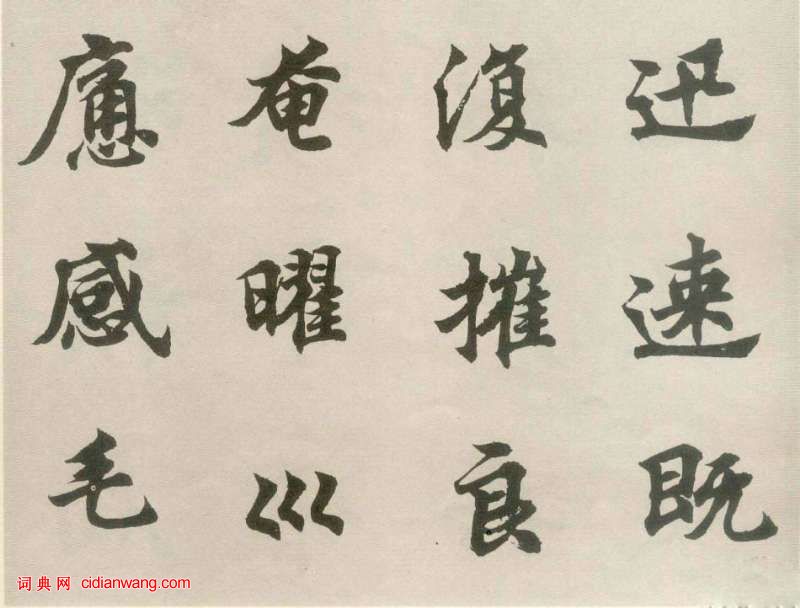 迅速既
復摧良
奄曜巛
應感毛
词典网 cidianwang.com